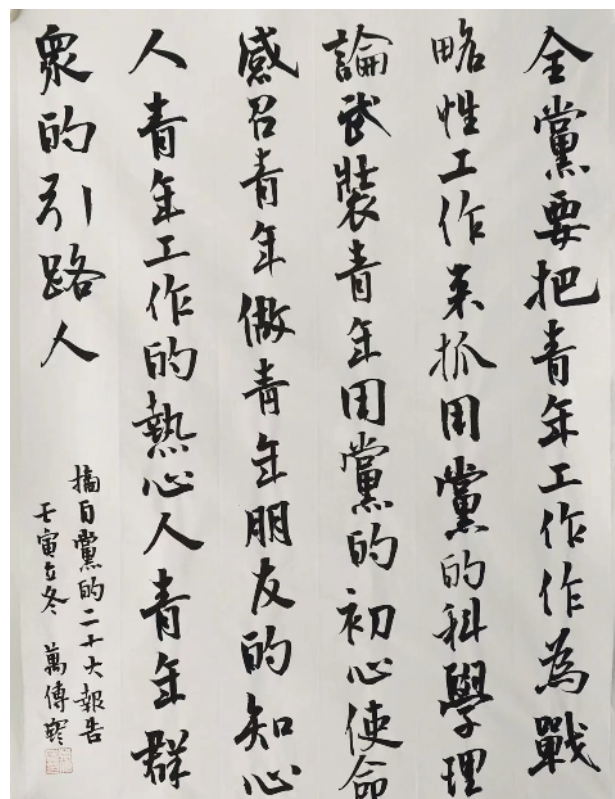 全黨要把青年工作作為戰
略性工作来抓用黨的科學理
論武裝青年用黨的初心使命
感召青年做青年朋友的知心
人青年工作的熱心人青年群
衆的引路人
摘自黨的二十大報告
壬寅立冬 萬傳